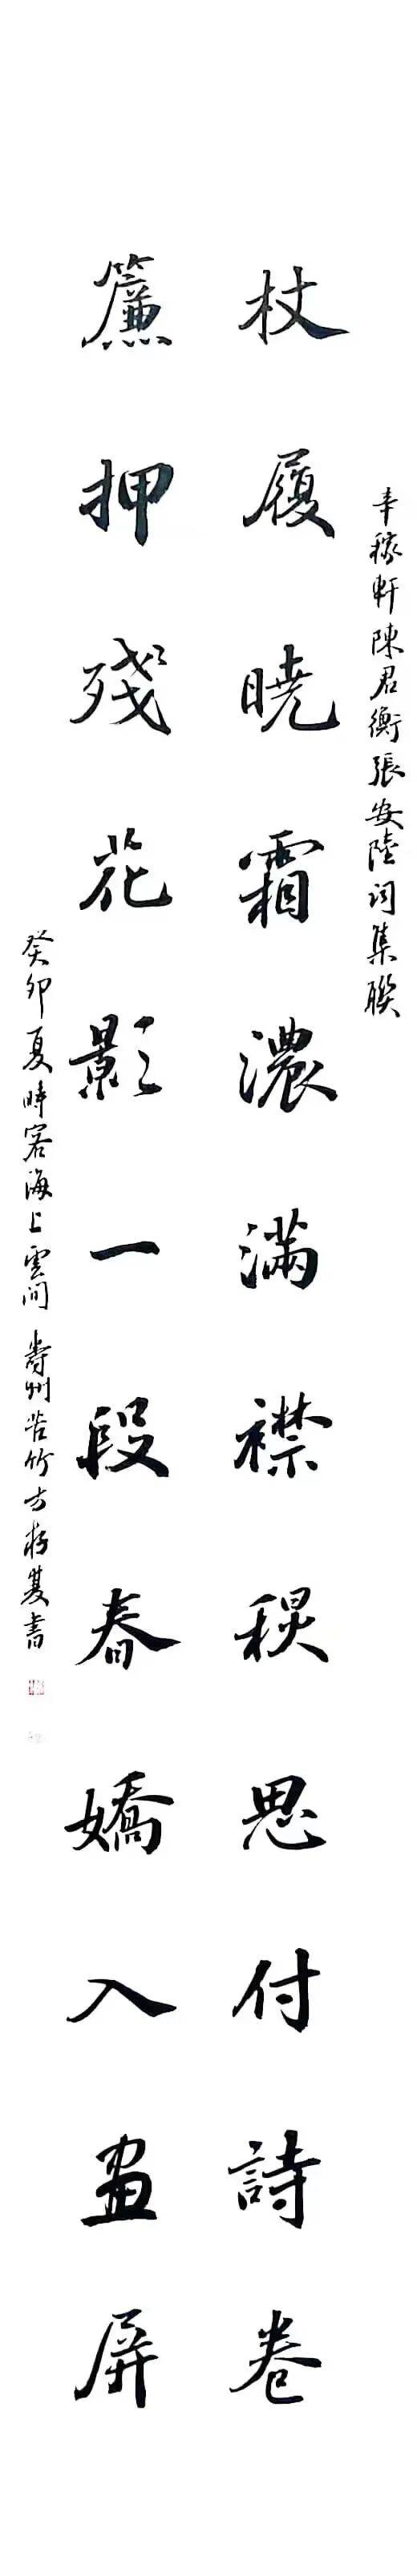 辛稼軒陳君衡張安陸詞集聯
杖履曉霜濃滿襟秋思付詩卷
簾押殘花影一段春嬌入畫屏
癸卯夏時客海上雲間 壽州苦竹方存雙書